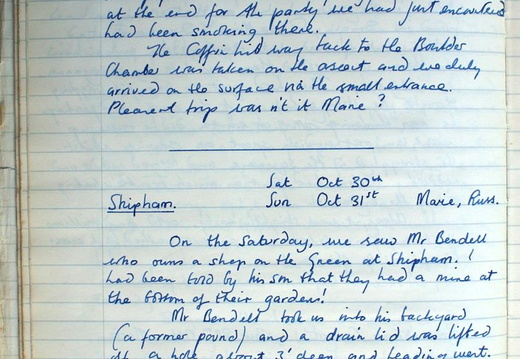 at the end for the party we had just encountered
had been smoking there.
The Coffin lid way back to the Boulder
Chamber was taken on the ascent and we duly
arrived on the surface via the small entrance.
Pleasant trip wasn't it Marie?
Sat Oct 30th
Shipham. Sun Oct 31st Marie, Russ.
On the Saturday, we saw Mr Bendell
who owns a shop on the Green at Shipham. I
had been told by his son that they had a mine at
the bottom of their gardens!
Mr Bendell took us into his backyard
(a former pound) and a drain lid was lifted
a hole about 3' deep and leading west.